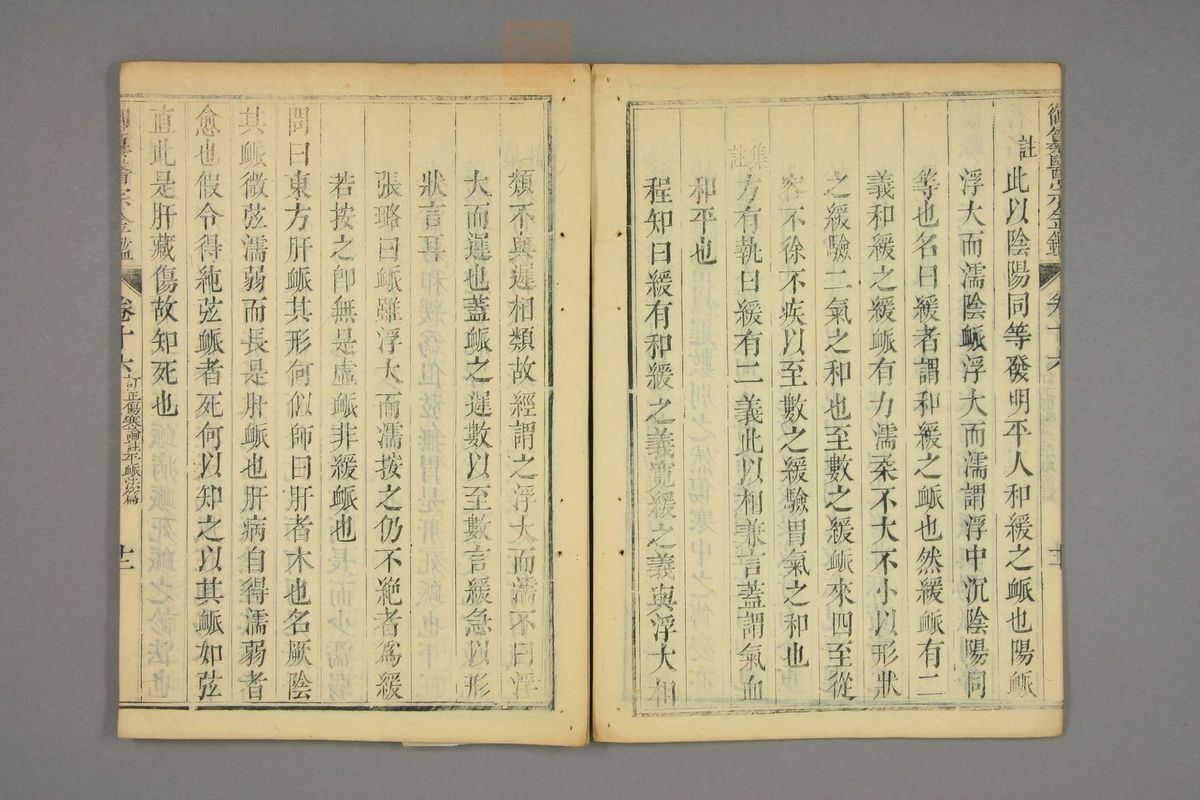 御纂醫宗金鑑 卷十六
註
此以陰陽同等發明平人和緩之脈也陽脈
浮大而濡陰脈浮大而濡謂浮中沉陰陽同
等也名曰緩者謂和緩之脈也然緩脈有二
義和緩之緩脈有力濡柔不大不小以形狀
之緩驗二氣之和也至數之緩脈來四至從
容不徐不疾以至數之緩驗胃氣之和也
集註
方有執曰緩有二義此以相兼言蓋謂氣血
和平也
程知曰緩有和緩之義寬緩之義與浮大相
類不與遲相類故經謂之浮大而濡不曰浮
大而遲也蓋脈之遲數以至數言緩急以形
狀言
張璐曰脈雖浮大而濡按之仍不絕者為緩
若按之卽無是虛脈非緩脈也
問曰東方肝脈其形何似師曰肝者木也名厥陰
其脈微弦濡弱而長是肝脈也肝病自得濡弱者
愈也假令得純弦脈者死何以知之以其脈如弦
直此是肝藏傷故知死也
卷十六 訂正傷寒論註平脈法篇 十二